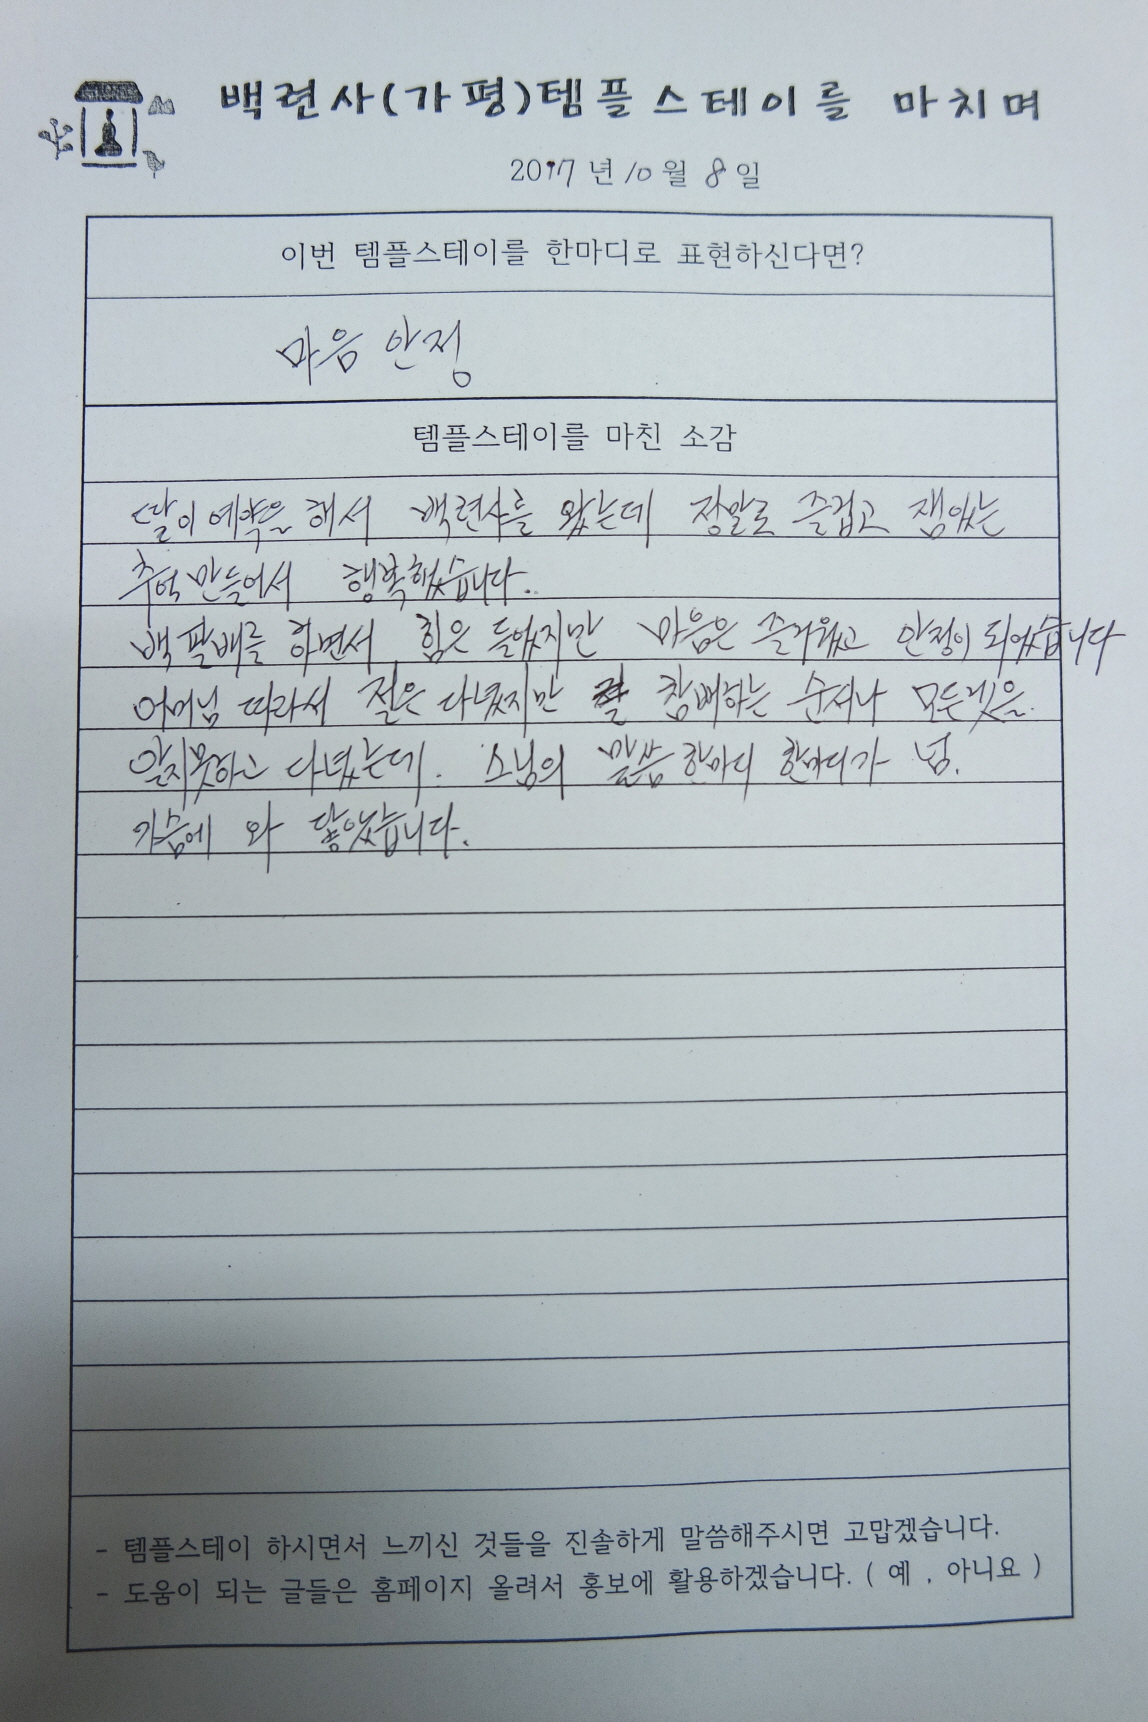 백련사(가평)템플스테이를 마치며
2017년 10월 8일
이번 템플스테이를 한마디로 표현하신다면?
마음 안정
템플스테이를 마친 소감
딸이 예약을 해서 백련사를 왔는데 정말로 즐겁고 잼있는
추억 만들어서 행복했습니다..
백팔배를 하면서 힘은 들었지만 마음은 즐거웠고 안정이 되었습니다
어머님 따라서 절은 다녔지만 참배하는 순서나 모든것을
알지못하고 다녔는데. 스님의 말씀 한마디 한마디가 넘.
가슴에 와 닿았습니다.
- 템플스테이 하시면서 느끼신 것들을 진솔하게 말씀해주시면 고맙겠습니다.
- 도움이 되는 글들은 홈페이지 올려서 홍보에 활용하겠습니다. ( 예 , 아니요 )